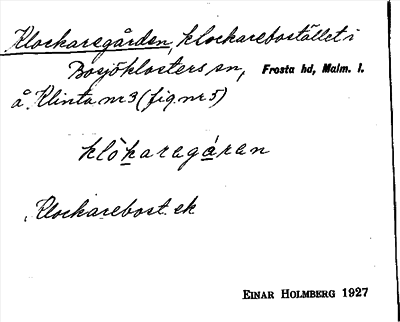 Klockaregården, klockarebostället i
Bosjöklosters sn, Frosta hd, Malm. l.
å Klinta nr 3 (fig. nr 5)
klòkaragáran
Klockarebost. ek
EINAR HOLMBERG 1927